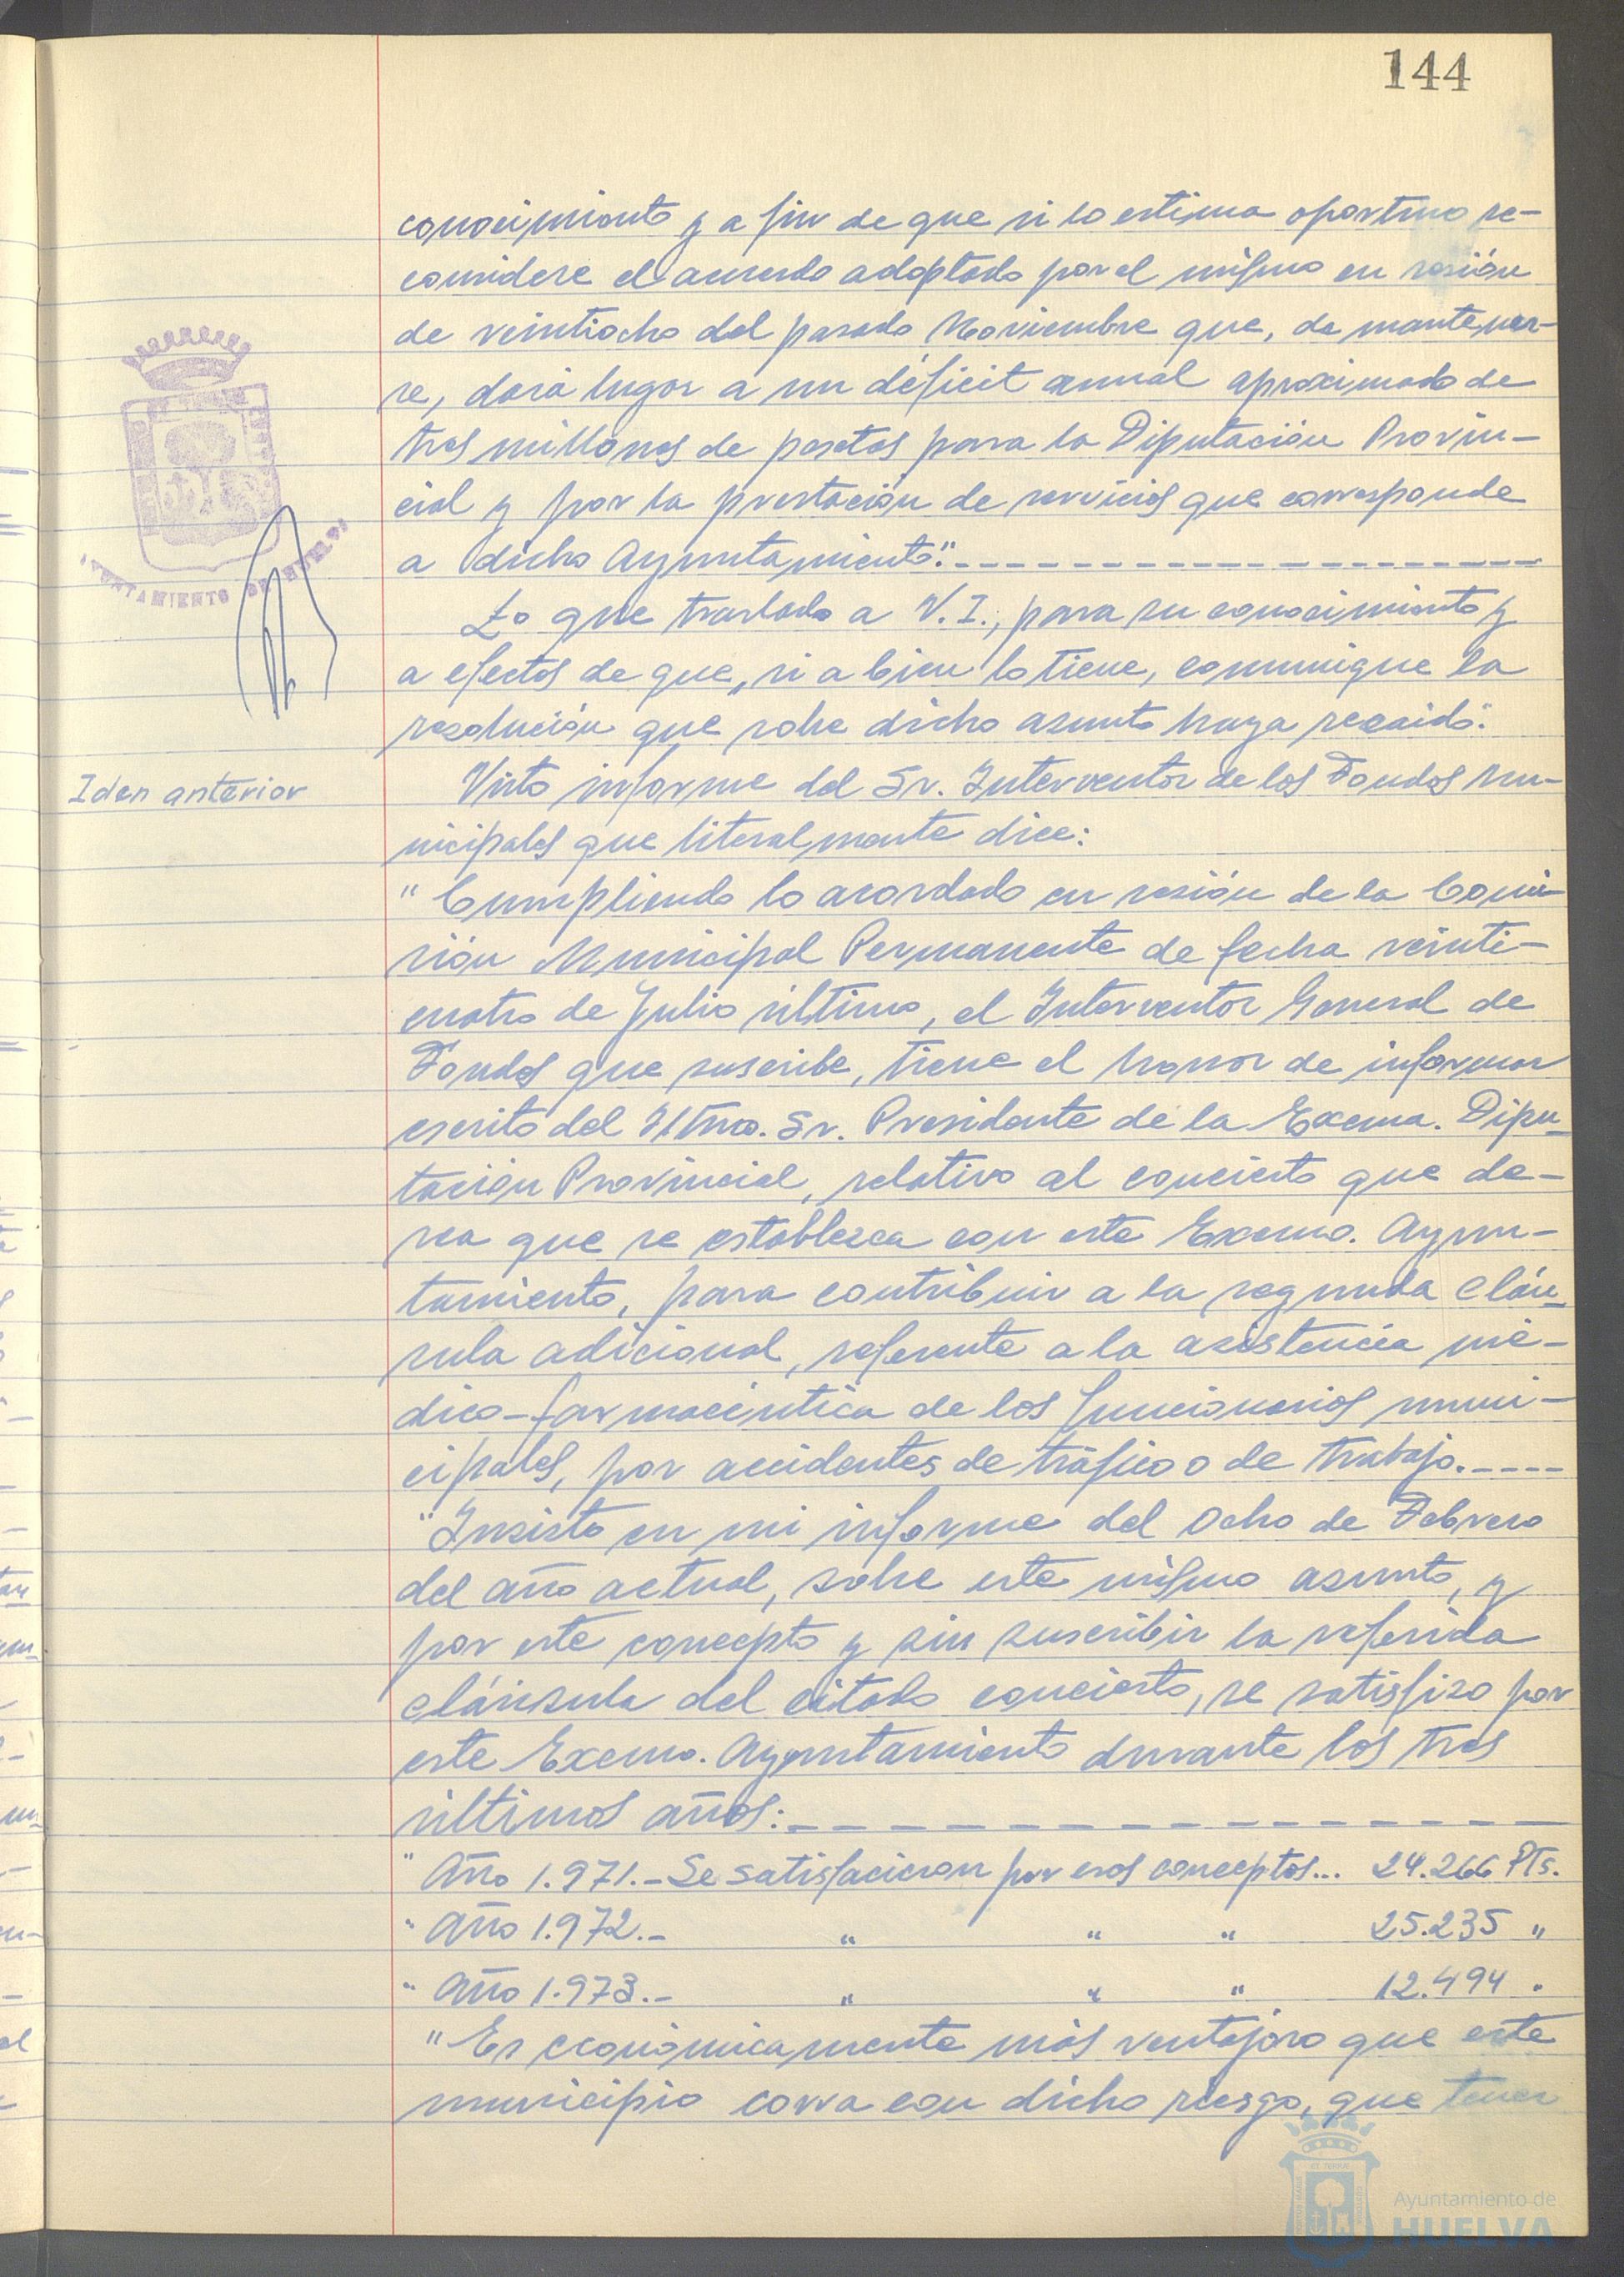 144
conocimiento y a fin de que si lo estima oportuno re-
considere el acuerdo adoptado por el mismo en sesión
de veintiocho del pasado Noviembre que, de mantener-
se, dará lugar a un déficit anual aproximado de
tres millones de pesetas para la Diputación Provin-
cial y por la prestación de servicios que corresponde
a dicho Ayuntamiento".
AYUNTAMIENTO DE HUELVA
Lo que traslado a V.I., para su conocimiento y
a efectos de que, si a bien lo tiene, comunique la
resolución que sobre dicho asunto haya recaido".
Iden anterior
Visto informe del Sr. Interventor de los Fondos Mu-
nicipales que literalmente dice:
"Cumpliendo lo acordado en sesión de la Comi-
sión Municipal Permanente de fecha veinti-
cuatro de Julio último, el Interventor General de
Fondos que suscribe, tiene el honor de informar
escrito del Iltmo. Sr. Presidente de la Excma. Dipu-
tación Provincial, relativo al concierto que de-
sea que se establezca con este Excmo. Ayun-
tamiento, para contribuir a la segunda cláu-
sula adicional, referente a la asistencia mé-
dico-farmacéutica de los funcionarios muni-
cipales, por accidentes de tráfico o de trabajo.----
"Insisto en mi informe del ocho de Febrero
del año actual, sobre este mismo asunto, y
por este concepto y sin suscribir la referida
cláusula del citado concierto, se satisfizo por
este Excmo. Ayuntamiento durante los tres
últimos años:
" Año 1.971.- Se satisfacieron por esos conceptos... 24.266 Pts.
" Año 1.972.- " " " 25.235 "
" Año 1.973.- " " " 12.494 "
"Es económicamente más ventajoso que este
municipio corra con dicho riesgo, que tener
Ayuntamiento de
HUELVA